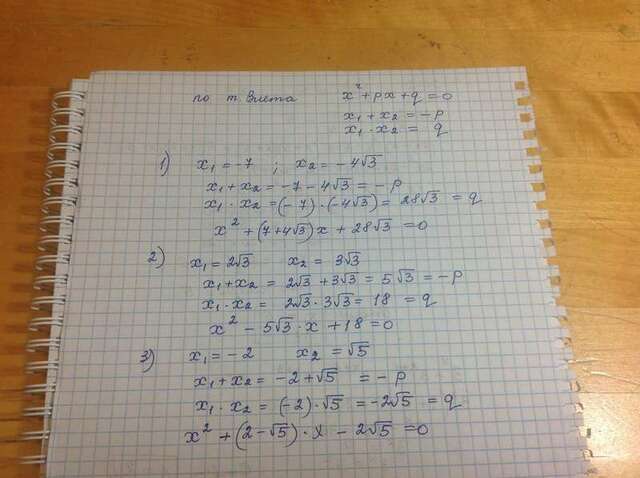 по т. Виета x² + px + q = 0
x₁ + x₂ = -p
x₁ · x₂ = q
1) x₁ = -7 ; x₂ = -4√3
x₁ + x₂ = -7 - 4√3 = -p
x₁ · x₂ = (-7) · (-4√3) = 28√3 = q
x² + (7+4√3) x + 28√3 = 0
2) x₁ = 2√3 x₂ = 3√3
x₁ + x₂ = 2√3 + 3√3 = 5√3 = -p
x₁ · x₂ = 2√3 · 3√3 = 18 = q
x² - 5√3 · x + 18 = 0
3) x₁ = -2 x₂ = √5
x₁ + x₂ = -2 + √5 = -p
x₁ · x₂ = (-2) · √5 = -2√5 = q
x² + (2-√5) · x - 2√5 = 0